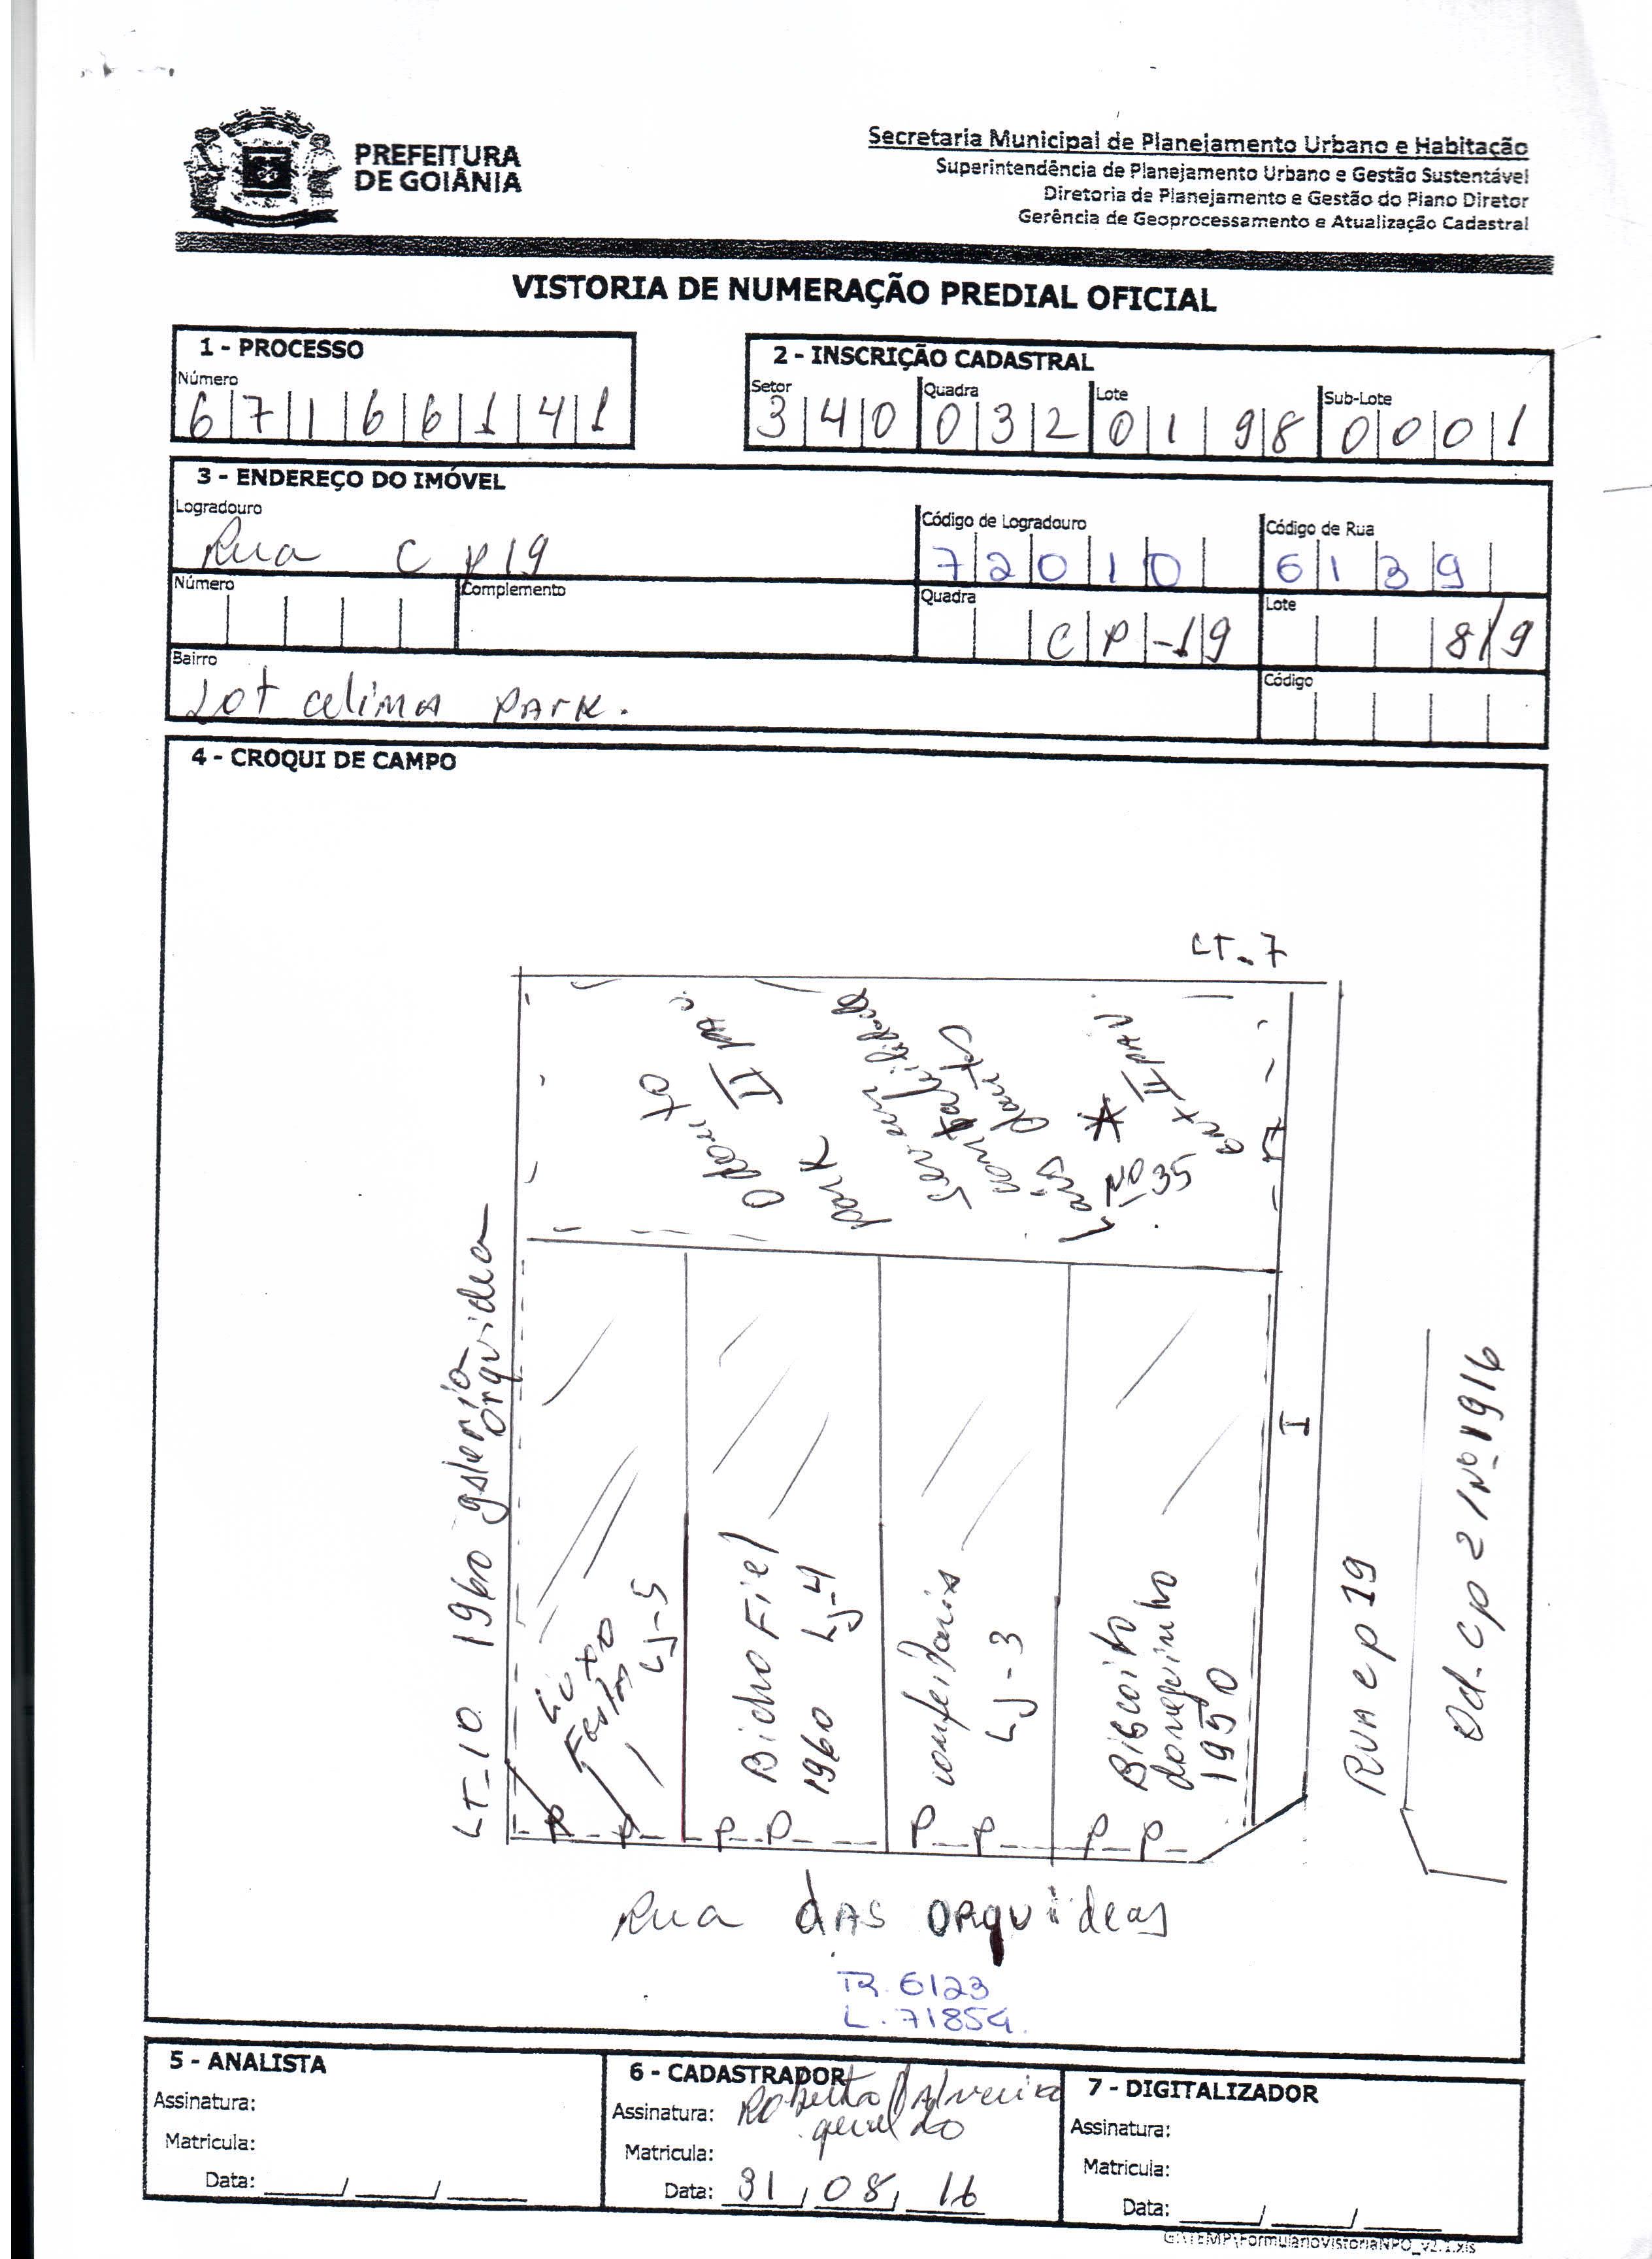 PREFEITURA
DE GOIÂNIA
Secretaria Municipal de Planejamento Urbano e Habitação
Superintendência de Planejamento Urbano e Gestão Sustentável
Diretoria de Planejamento e Gestão do Plano Diretor
Gerência de Geoprocessamento e Atualização Cadastral
VISTORIA DE NUMERAÇÃO PREDIAL OFICIAL
1 - PROCESSO
Número
6 7 1 6 6 1 4 1
2 - INSCRIÇÃO CADASTRAL
Setor Quadra Lote Sub-Lote
3 4 0 0 3 2 0 1 9 8 0 0 0 1
3 - ENDEREÇO DO IMÓVEL
Logradouro
Rua C P 19
Código de Logradouro
7 2 0 1 0
Código de Rua
6 1 3 9
Número
Complemento
Quadra
C P - 1 9
Lote
8/9
Bairro
Lot celima PARK.
Código
4 - CROQUI DE CAMPO
LT-7
Odonto
park II PAV.
contabilidade
Lais
Nº 35
II PAV
LT-10 1960 galeria
orquidea
Luxo
Festas
LJ-5
Bicho Fiel
1960 LJ-4
confeitaria
LJ-3
Biscoito
1950
I
P P P P P P P P
RUA CP 19
Qd. CP 2 / Nº 1916
Rua DAS ORQUideas
R. 6123
L. 71854
5 - ANALISTA
Assinatura:
Matricula:
Data: ____/____/____
6 - CADASTRADOR
Assinatura: Roberto
geraldo
Matricula:
Data: 31/08/16
7 - DIGITALIZADOR
Assinatura:
Matricula:
Data: ____/____/____
G:\TEMP\FormularioVistoriaNPO_v2.1.xls